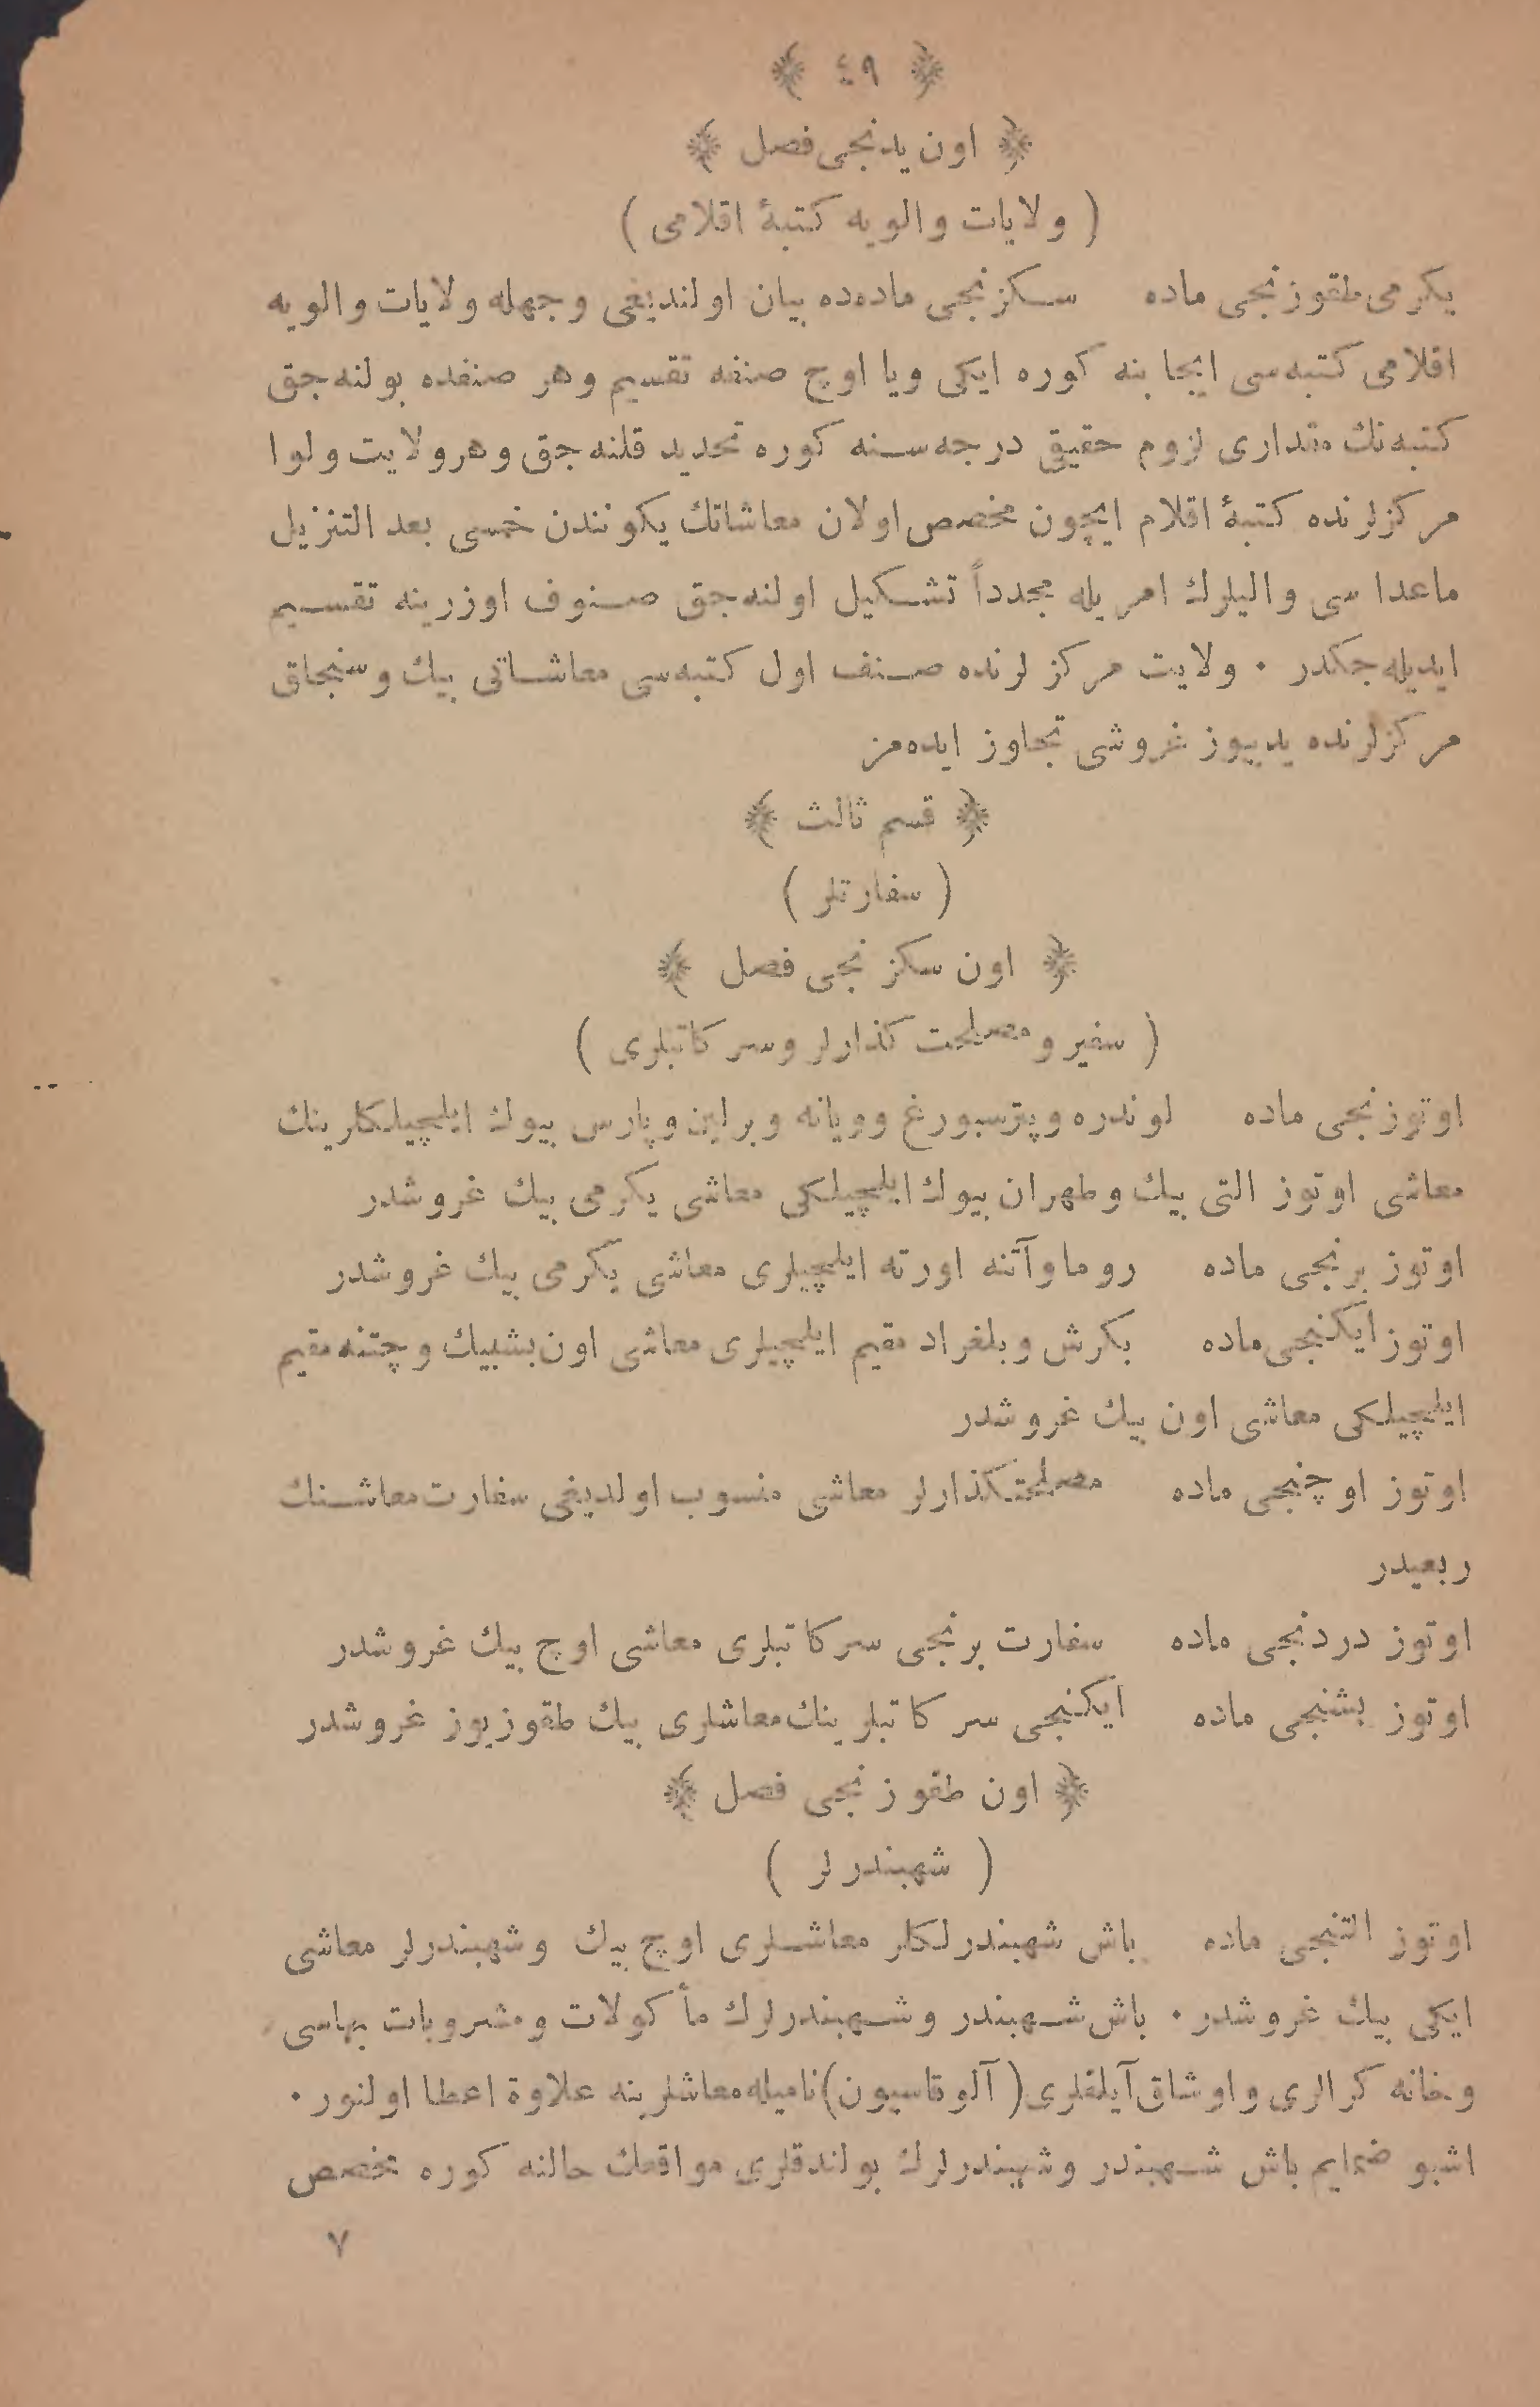 ﴿ ٤٩ ﴾
﴿ اون يدنجى فصل ﴾
( ولايات والويه كتبۀ اقلامى )
يكرمى طقوزنجى ماده سكزنجى ماده‌ده بيان اولنديغى وجهله ولايات والويه
اقلامى كتبه‌سى ايجابنه كوره ايكى ويا اوچ صنفه تقسيم وهر صنفده بولنه‌جق
كتبه‌نك مقدارى لزوم حقيقى درجه‌سنه كوره تحديد قلنه‌جق وهرولايت ولوا
مركزلرنده كتبۀ اقلام ايچون مخصص اولان معاشاتك يكونندن خمسى بعد التنزيل
ماعداسى واليلرك امريله مجدداً تشكيل اولنه‌جق صنوف اوزرينه تقسيم
ايديله‌جكدر ۰ ولايت مركزلرنده صنف اول كتبه‌سى معاشاتى بيك وسنجاق
مركزلرنده يديبوز غروشى تجاوز ايده‌مز
﴿ قسم ثالث ﴾
( سفارتلر )
﴿ اون سكزنجى فصل ﴾
( سفير ومصلحت كذارلر وسركاتبلرى )
اوتوزنجى ماده لوندره وپترسبورغ وويانه وبرلين وپارس بيوك ايلچيلكلرينك
معاشى اوتوز التى بيك وطهران بيوك ايلچيلكى معاشى يكرمى بيك غروشدر
اوتوز برنجى ماده روما وآتنه اورته ايلچيلرى معاشى يكرمى بيك غروشدر
اوتوز ايكنجى ماده بكرش وبلغراد مقيم ايلچيلرى معاشى اون بشبيك وچتنه مقيم
ايلچيلكى معاشى اون بيك غروشدر
اوتوز اوچنجى ماده مصلحتكذارلر معاشى منسوب اولديغى سفارت معاشنك
ربعيدر
اوتوز دردنجى ماده سفارت برنجى سركاتبلرى معاشى اوچ بيك غروشدر
اوتوز بشنجى ماده ايكنجى سركاتبلرينك معاشلرى بيك طقوزيوز غروشدر
﴿ اون طقوزنجى فصل ﴾
( شهبندرلر )
اوتوز التنجى ماده باش شهبندرلكلر معاشلرى اوچ بيك وشهبندرلر معاشى
ايكى بيك غروشدر ۰ باش شهبندر وشهبندرلرك مأكولات ومشروبات بهاسى
وخانه كرالرى واوشاق آيلقلرى (آلوقاسيون) ناميله معاشلرينه علاوة اعطا اولنور ۰
اشبو ضمايم باش شهبندر وشهبندرلرك بولندقلرى مواقعك حالنه كوره مخصص
٧